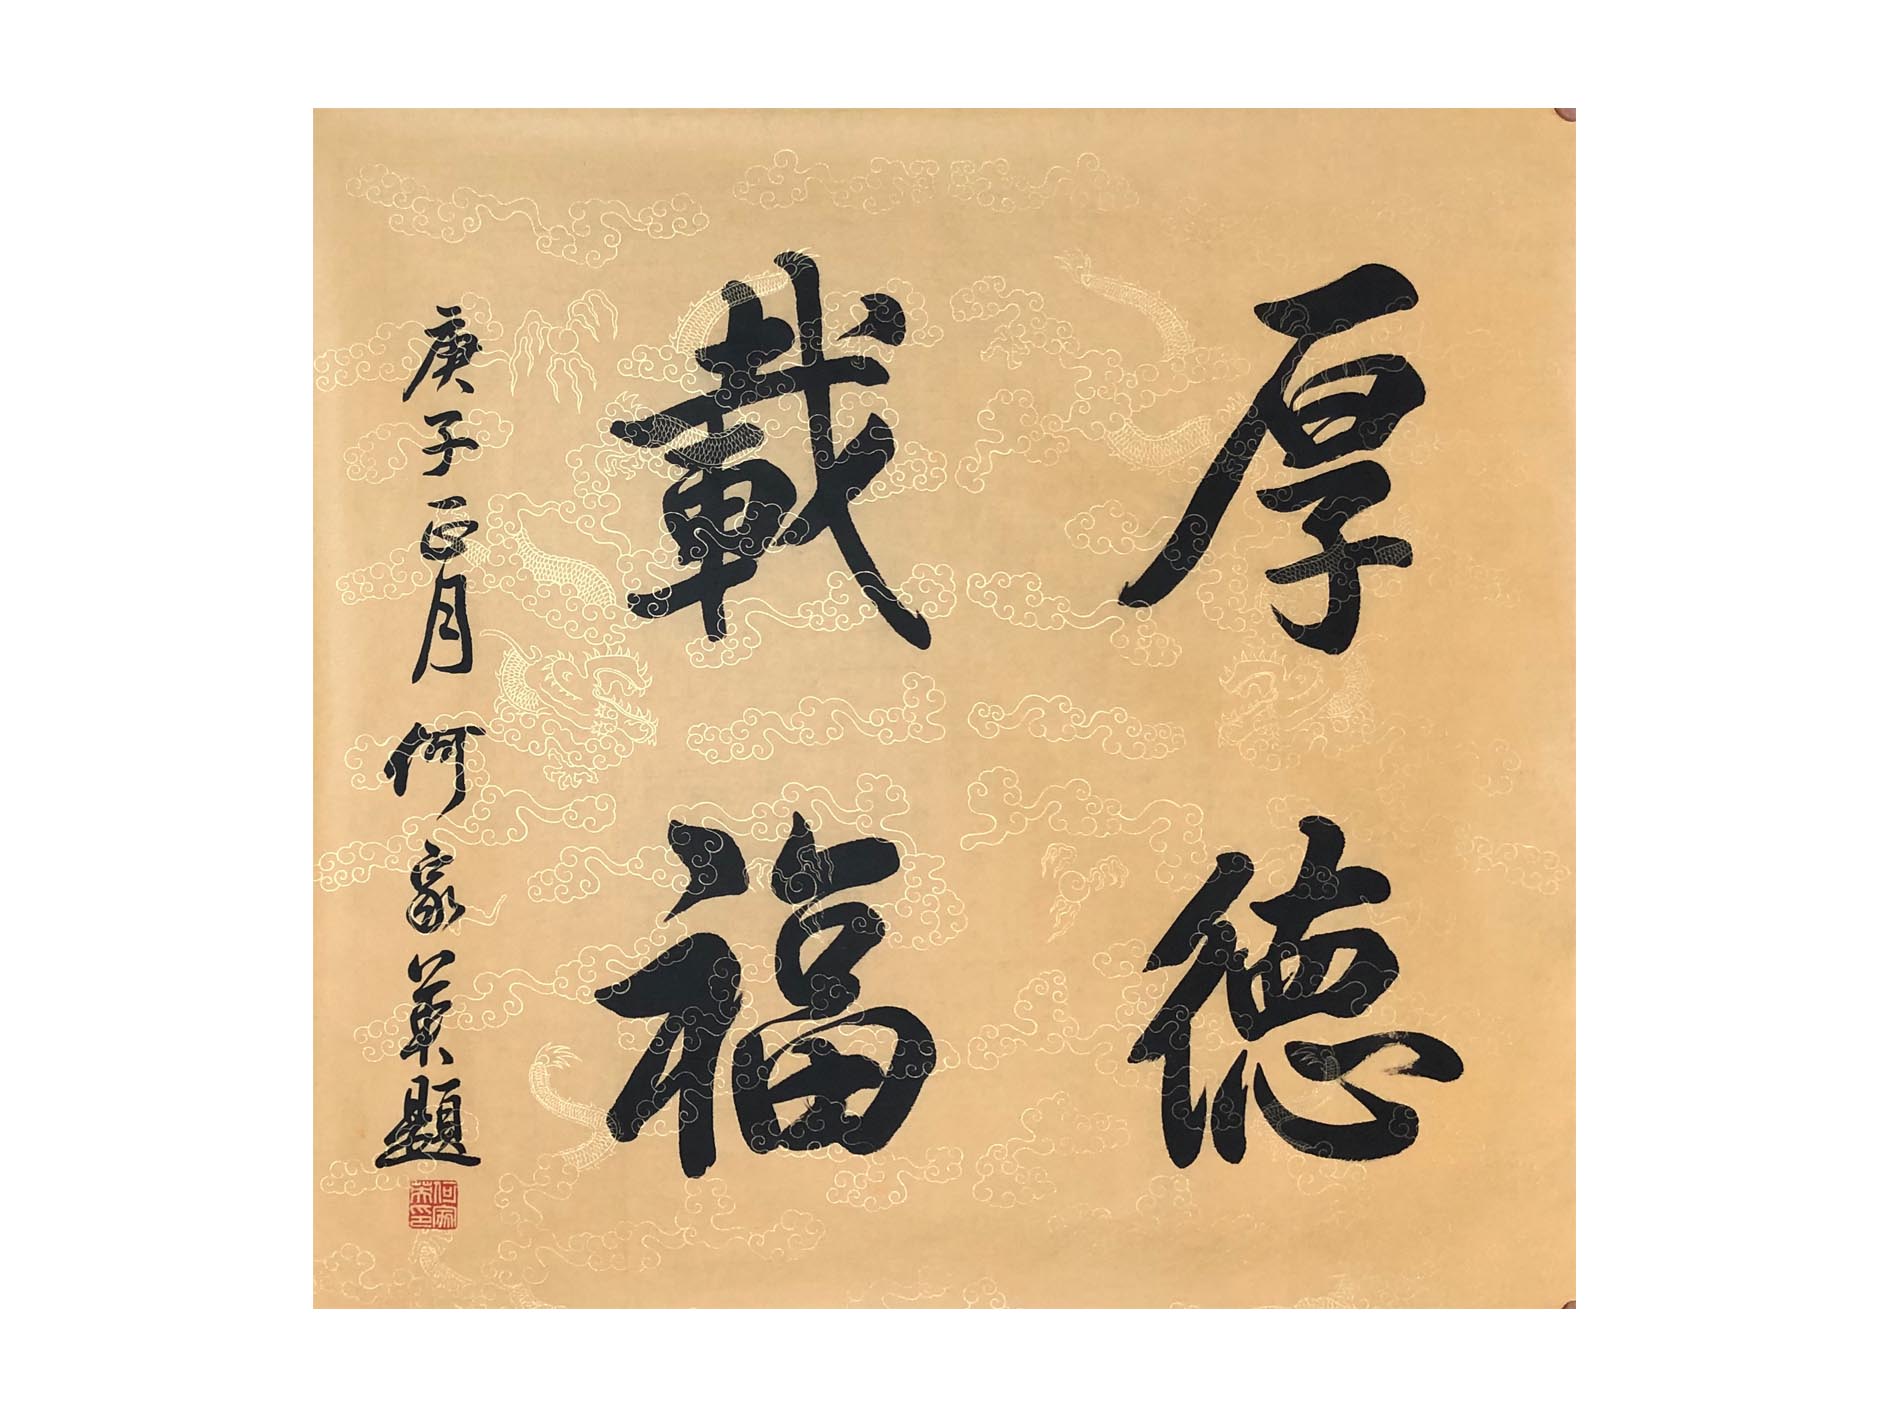 厚德
載福
庚子正月何家英題
何家英印